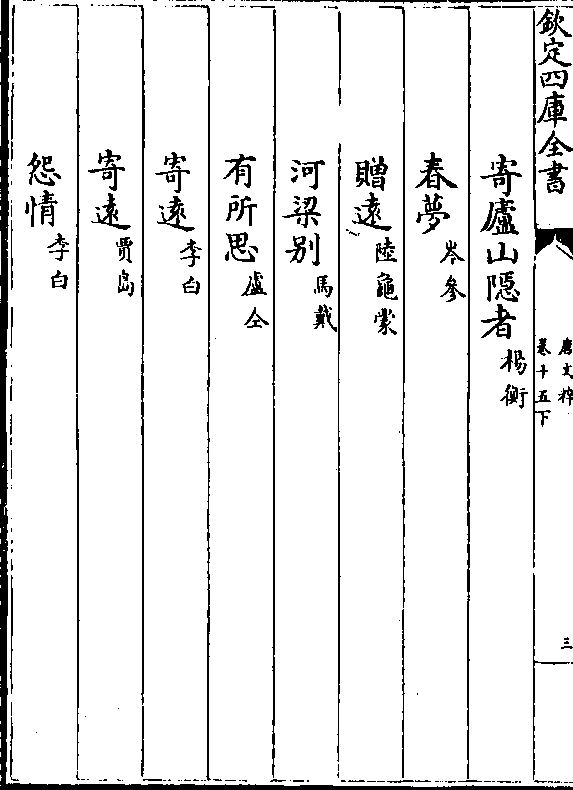 欽定四庫全書
唐文粹
卷十五下
三
寄廬山隠者 楊衡
春夢 岑參
贈遠 陸龜蒙
河梁别 馬戴
有所思 盧仝
寄遠 李白
寄遠 賈島
怨情 李白